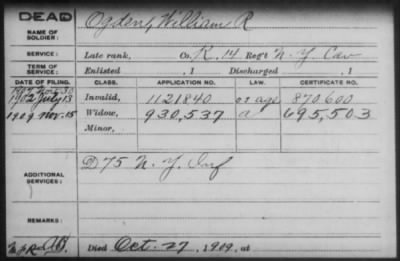 DEAD
NAME OF SOLDIER: Ogden, William R
SERVICE: Late rank, Co. K, 14 Reg't N. Y. Cav
TERM OF SERVICE: Enlisted , 1 Discharged , 1
DATE OF FILING. CLASS. APPLICATION NO. LAW. CERTIFICATE NO.
1902 July 13 Invalid, 1121840 870600
1909 Nov. 15 Widow, 930,537 a 695,503
Minor,
ADDITIONAL SERVICES: D 75 N. Y. Inf
REMARKS:
Died Oct. 27, 1909, at